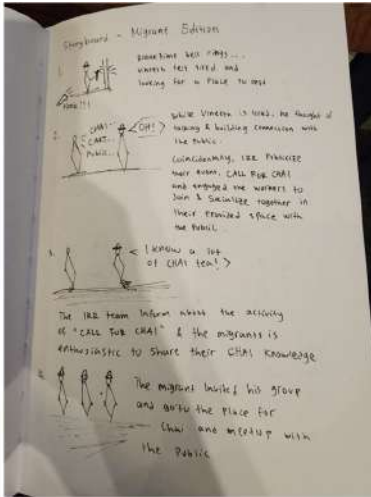 Storyboard - Migrant Edition
1.
Break time bell rings...
Vineeth felt tired and
looking for a place to rest
2.
CHAI
CART...
Public...
OH!
While Vineeth is tired, he thought of
talking & building connection with
the public.
Coincidentally, IRR Publicize
their event, CALL FOR CHAI
and engaged the workers to
Join & Socialize together in
their provided space with
the public.
3.
I know a lot
of CHAI tea!
The IRR team inform about the activity
of "CALL FOR CHAI" & the migrants is
enthusiastic to share their CHAI knowledge
The migrant invited his group
and go to the place for
Chai and meetup with
the public